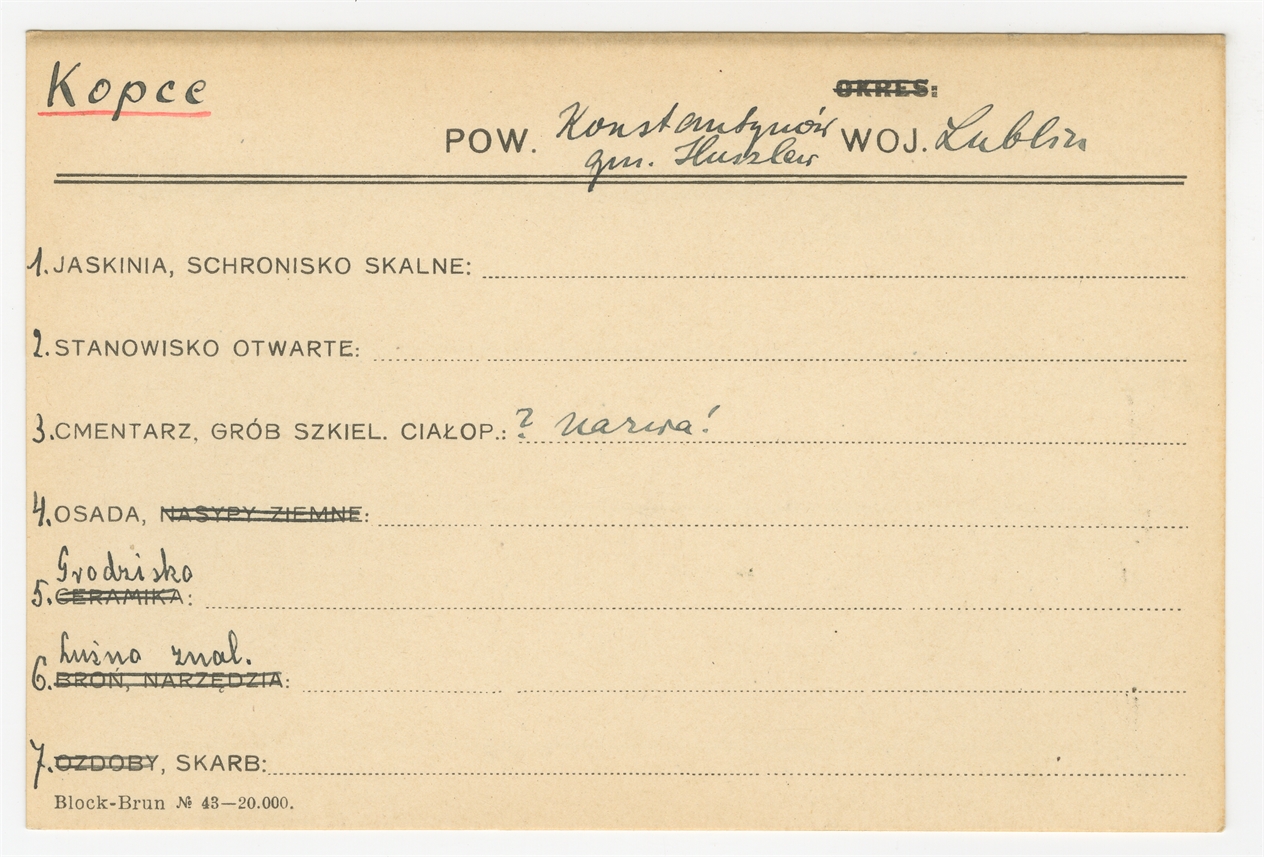 Kopce
OKRES:
POW. Konstantynów WOJ. Lublin
gm. Huszlew
1. JASKINIA, SCHRONISKO SKALNE:
2. STANOWISKO OTWARTE:
3. CMENTARZ, GRÓB SZKIEL. CIAŁOP.: ? nazwa!
4. OSADA, NASYPY ZIEMNE:
Grodzisko
5. CERAMIKA:
Luźno znal.
6. BROŃ, NARZĘDZIA:
7. OZDOBY, SKARB:
Block-Brun № 43—20.000.